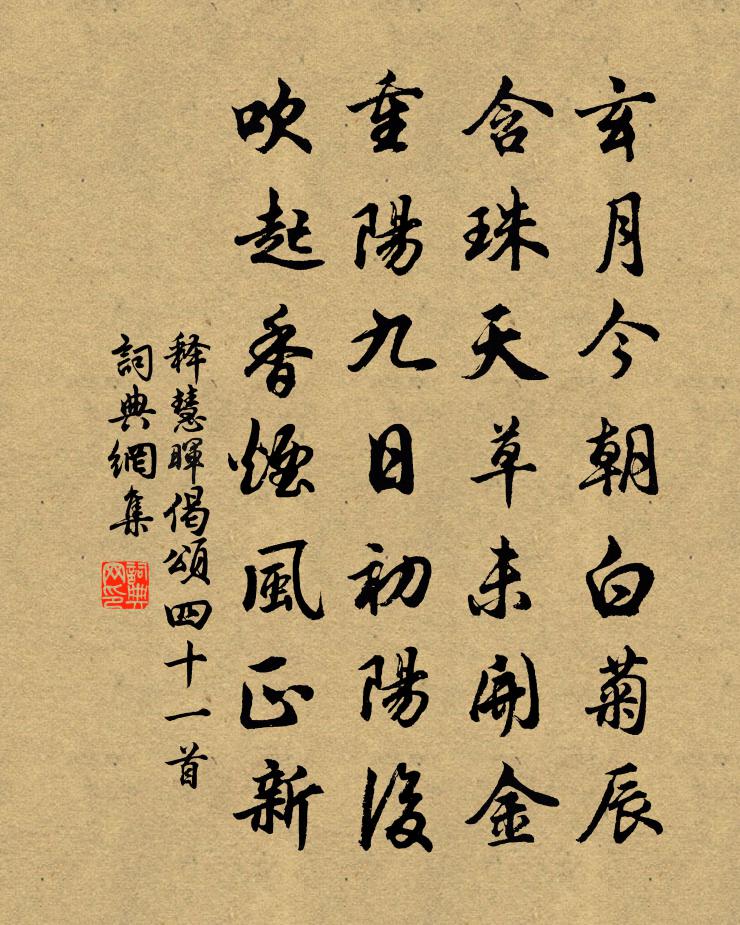 玄月今朝白菊辰
含珠天草未開金
重陽九日初陽後
吹起香煙風正新
释慧暉偈頌四十一首
詞典網集
詞典網印